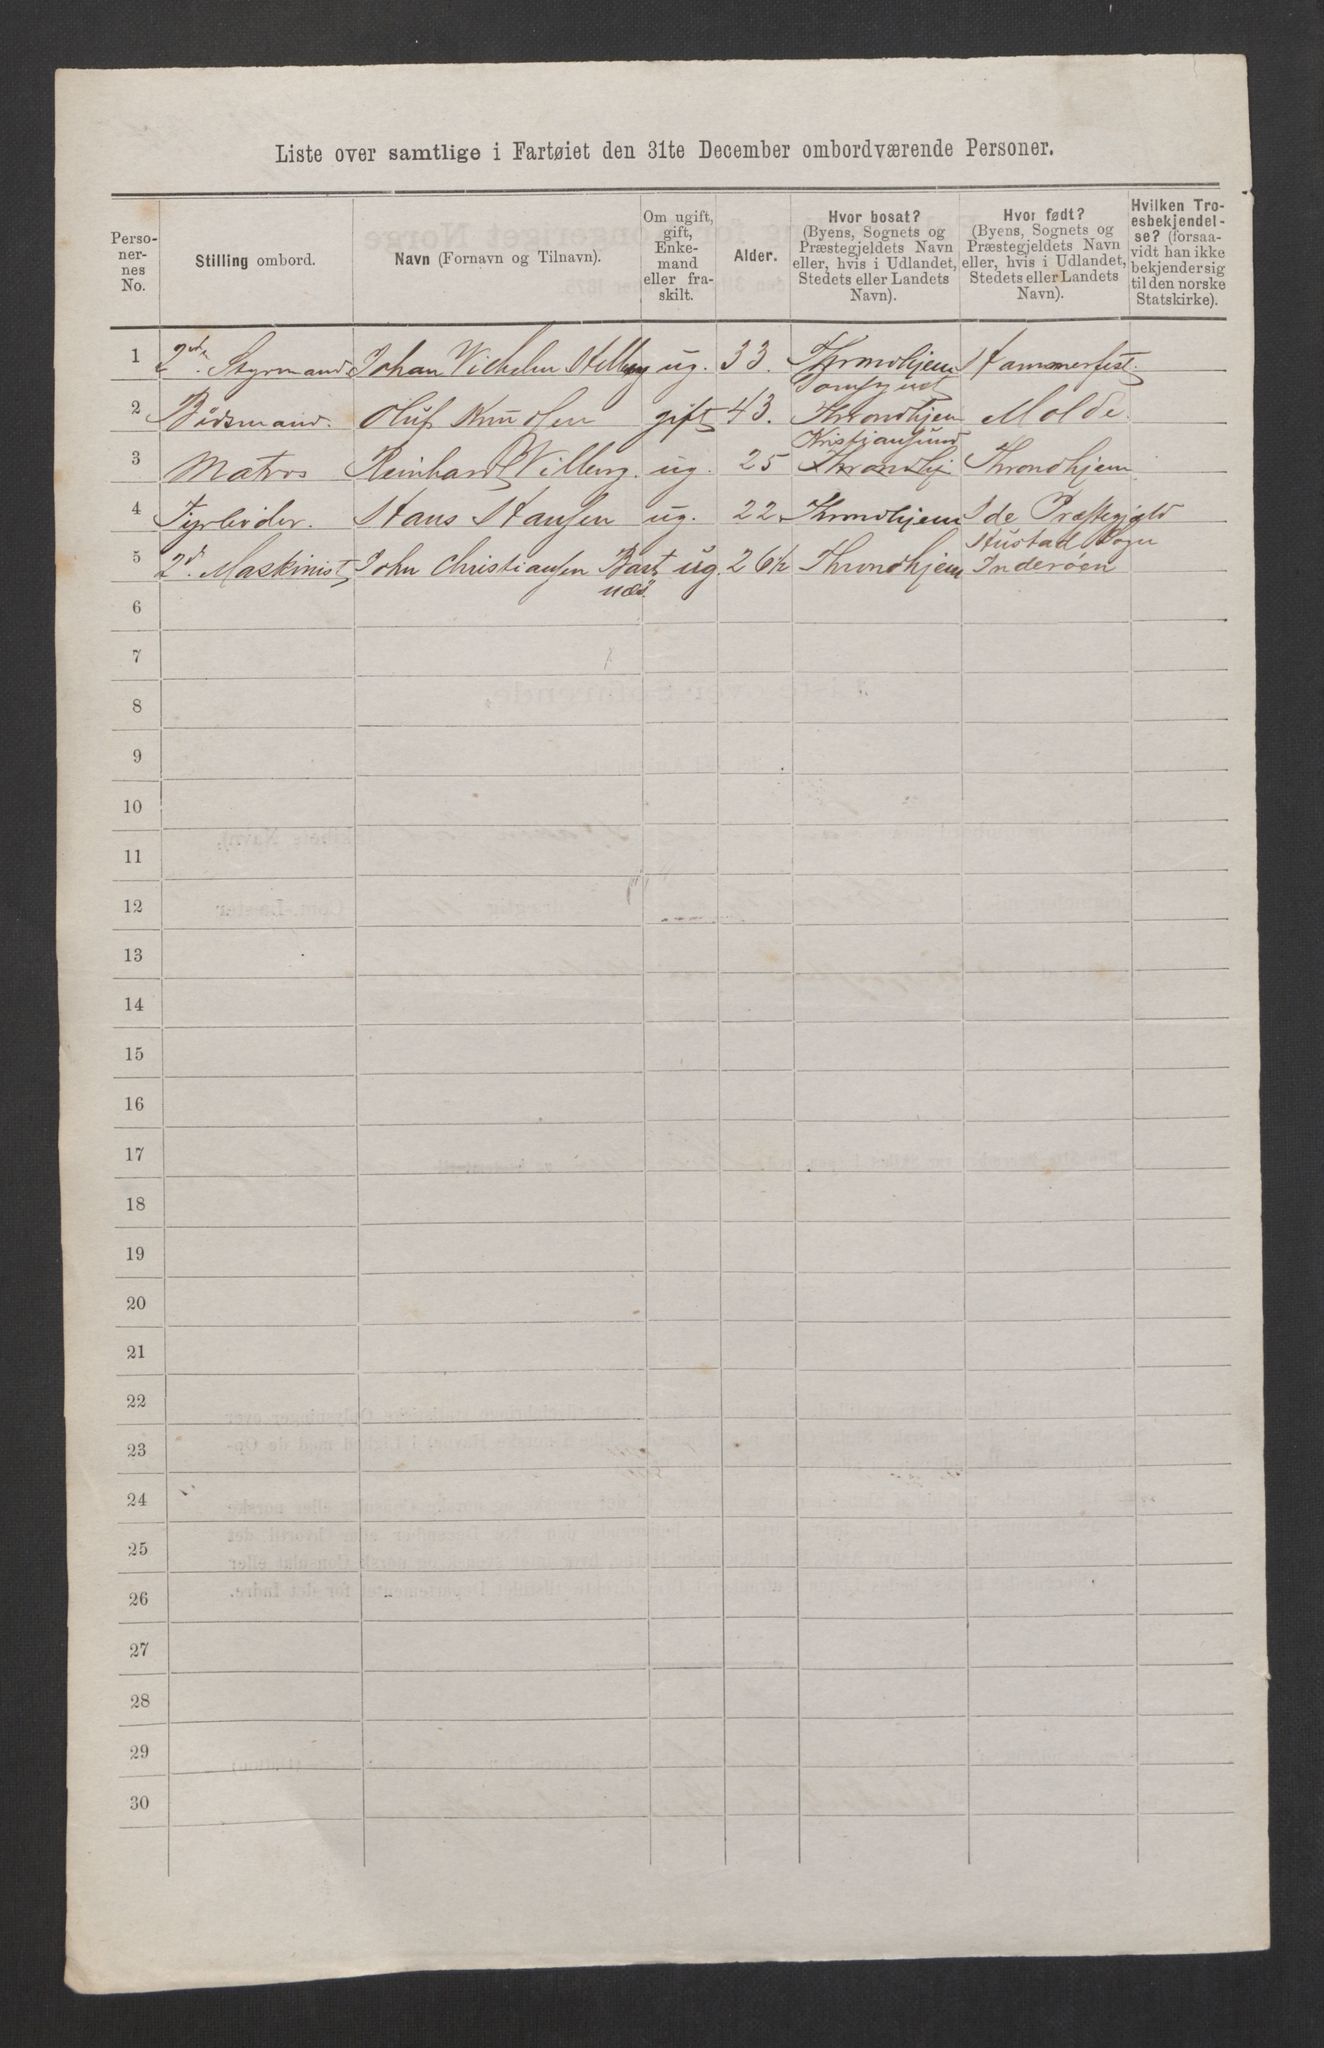 Liste over samtlige i Fartøiet den 31te December ombordværende Personer.
Perso-
ner-
nes
No.
Stilling ombord.
Navn (Fornavn og Tilnavn).
Om ugift,
gift,
Enke-
mand
eller fra-
skilt.
Alder.
Hvor bosat?
(Byens, Sognets og
Præstegjeldets Navn
eller, hvis i Udlandet,
Stedets eller Landets
Navn).
Hvor født?
(Byens, Sognets og
Præstegjeldets Navn
eller, hvis i Udlandet,
Stedets eller Landets
Navn).
Hvilken Tro-
esbekjendel-
se? (forsaa-
vidt han ikke
bekjender sig
til den norske
Statskirke).
1 Styrmand Johan Vilhelm ug. 33. Throndhjem Hammerfest.
2 Bådsmand. Oluf Knudsen gift 43. Throndhjem Molde.
Kristiansund
3 Matros Reinhardt Vilberg. ug. 25 Throndhj Throndhjem
4 Fyrbøder. Hans Hansen ug. 22 Throndhjem Ide Præstegjæld
Hustad Sogn
5 2d. Maskinist John Christiansen Bart ug. 26½ Throndhjem Inderøen
næs.
6
7
8
9
10
11
12
13
14
15
16
17
18
19
20
21
22
23
24
25
26
27
28
29
30